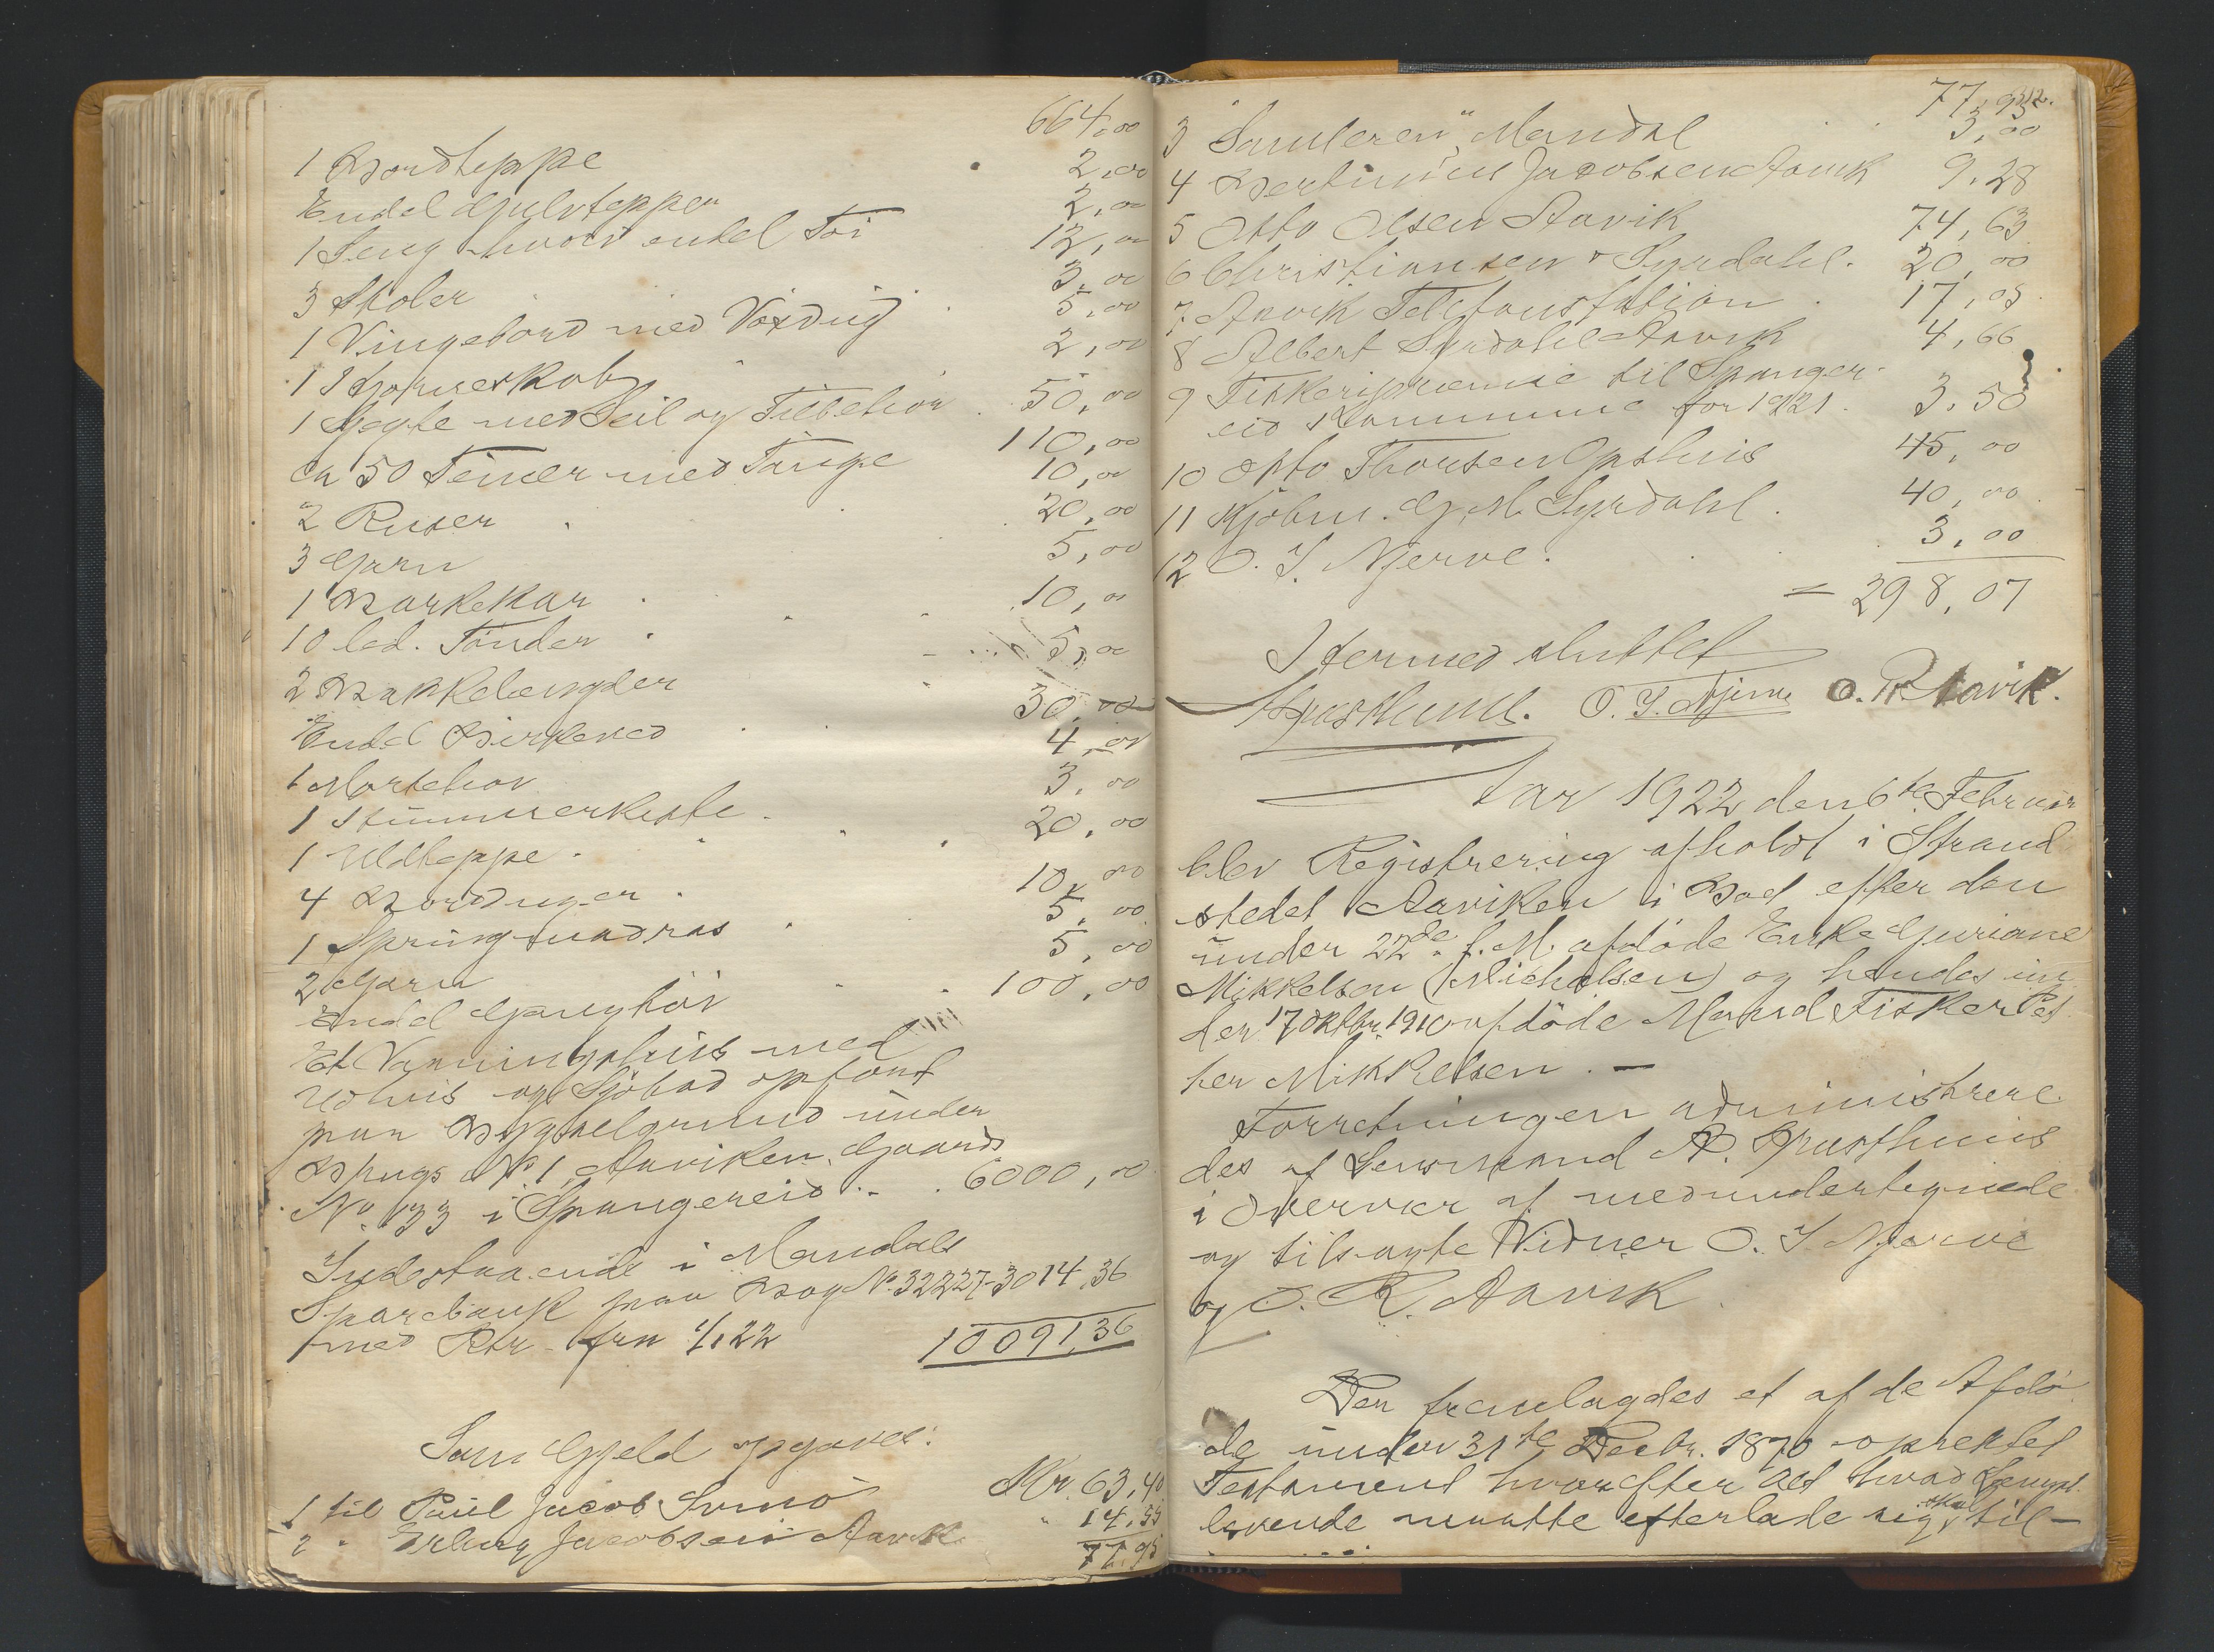 664,00
1 Bordteppe 2,00
Endel Gulvteppen 2,00
1 Seng hvori endel Töi 12,00
3 Stoler 3,00
1 Vingebord med Voxdug 5,00
1 Hjørneskab 2,00
1 Sjegte med Seil og Tilbehör 50,00
ca 50 Teiner med Taug 110,00
2 Ruser 10,00
3 Garn 20,00
1 Barkekar 5,00
10 led. Tönder 10,00
2 Bakkelængder 5,00
Endel Birkeved 30,00
1 4,00
1 Kiste 3,00
1 Uldteppe 20,00
4 10,00
1 Springmadras 5,00
2 Garn 5,00
Endel Gangklær 100,00
Et Vaaningshus med
Udhus og Sjöbod opfört
paa Bygselgrund under
Brugs No 1, Aaviken, Gaards
No 133 i Spangereid 6000,00
Indestaaende i Mandals
Sparebank paa Bog No. 32227 - 3014,36
med Rtr fra 1/1 22
10091,36
Som Gjeld opgaves:
1 til Paul Jacob Svinö Kr. 63,40
2 " Erling Jacobsen Aavik " 14,55
77,95
312.
77,95
3 "Samleren", Mandal 3,00
4 Bertinius Jacobsen Aavik 9,28
5 Otto Olsen Aavik 74,63
6 Christiansen & Syrdahl. 20,00
7 Aavik Telefonstation 17,05
8 Albert Syrdahl Aavik 4,66
9 Fiskeripræmie til Spanger-
eid Kommune for 1921 3,50
10 Otto Thorsen Opshus 45,00
11 Kjöbm. G. M. Syrdahl 40,00
12 O. I. Njerve. 3,00
= 298,07
Hermed sluttet
O. I. Njerve O. R Aavik.
Aar 1922 den 6te Februar
blev Registrering afholdt i Strand
stedet Aaviken i Bod efter den
under 22de f. M. afdöde Enke Guriane
Mikkelsen (Michelsen) og hendes un
der 17 Oktbr. 1910 afdöde Mand Fisker Pet
ter Mikkelsen. —
Forretningen administrere
des af Lensmand
i Overvær af medundertegnede
og tilsagte Vidner O. I. Njerve
og O. R. Aavik.
Der fremlagdes et af de Afdö
de under 31te Decbr. 1870 oprettet
Testament hvorefter alt hvad Længst
levende maatte efterlade sig, skal til-